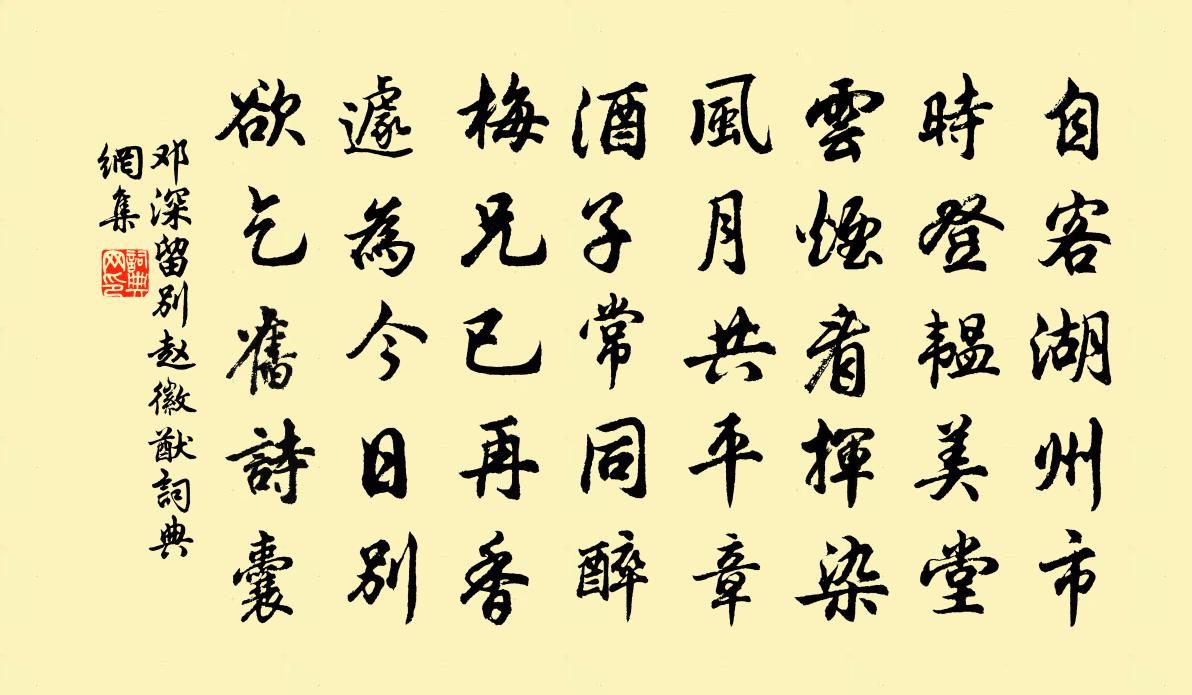 自客湖州市
時登韞美堂
雲煙看揮染
風月共平章
酒子常同醉
梅兄已再香
遽為今日別
欲乞舊詩囊
邓深留別赵徽猷詞典
網集
詞典
网印